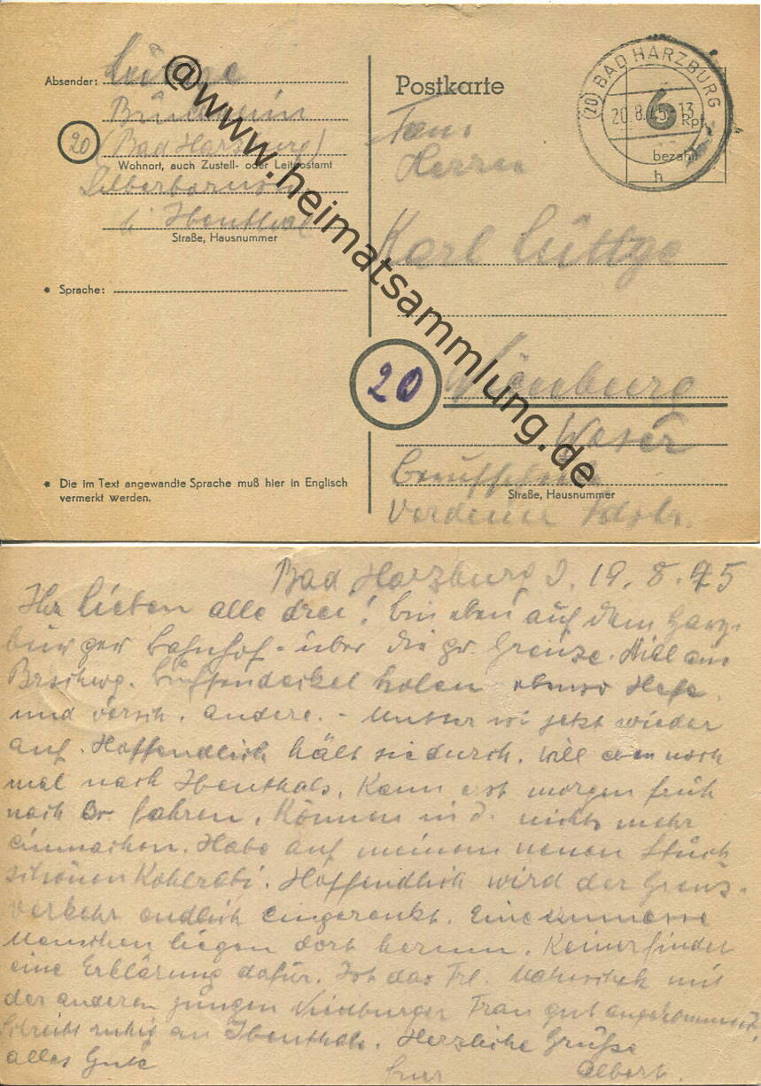 Absender:
Bündheim
20 (Bad Harzburg)
Wohnort, auch Zustell- oder Leitpostamt
Straße, Hausnummer
Sprache:
Die im Text angewandte Sprache muß hier in Englisch
vermerkt werden.
Postkarte
(20) BAD HARZBURG
20.8.45-13
6 Rpf.
bezahlt
h
Herrn
Karl Lüttge
20
Nienburg
Weser
Straße, Hausnummer
Verdener
@www.heimatsammlung.de
Bad Harzburg 19.8.45
Ihr lieben alle drei! bin eben auf dem Harz-
burger Bahnhof - über die Grenze. Will aus
Brschwg. holen ebenso Hefe
und versch. andere. - jetzt wieder
auf. Hoffendlich hält sie durch. Will eben noch
mal nach Ibenthals. Kann erst morgen früh
nach Br. fahren. Können nichts mehr
einmachen. Habe auf meinem neuen Stück
schönen Kohlrabi. Hoffendlich wird der Grenz-
verkehr endlich eingerenkt. Eine
Menschen liegen dort herum. Keiner findet
eine Erklärung dafür. Ist das Frl. mit
der anderen jungen Nienburger Frau gut angekommen?
Schreibt ruhig an Ibenthals. Herzliche Grüße
alles Gute
Albert.